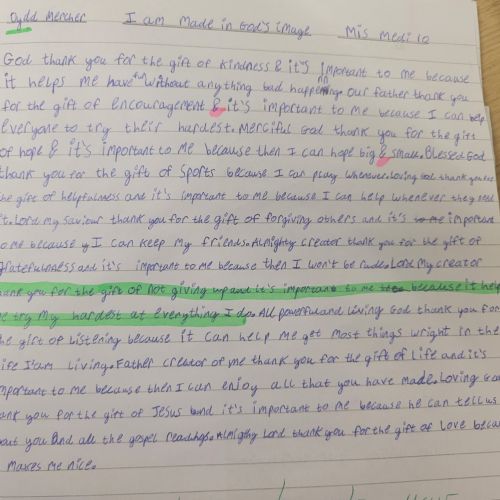 Dydd Mercher I am made in God's image Mis Medi 10
God thank you for the gift of kindness & it's important to me because
it helps me have fun without anything bad happening. Our father thank you
for the gift of encouragement & it's important to me because I can help
everyone to try their hardest. Merciful God thank you for the gift
of hope & it's important to me because then I can hope big & small. Blessed God
thank you for the gift of sports because I can play whenever. Loving God thank you for
the gift of helpfulness and it's important to me because I can help whenever they need
it. Lord my saviour thank you for the gift of forgiving others and it's to me important
to me because y I can keep my friends. Almighty creator thank you for the gift of
gratefulness and it's important to me because then I won't be rude. Lord my creator
thank you for the gift of not giving up and it's important to me because it help
me try my hardest at everything I do. All powerful and living God thank you for
the gift of listening because it can help me get most things wright in the
life I'am living. Father creator of me thank you for the gift of life and it's
important to me because then I can enjoy all that you have made. Loving God
thank you for the gift of Jesus and it's important to me because he can tell us
about you and all the gospel readings. Almigthy Lord thank you for the gift of love becau
makes me nice.